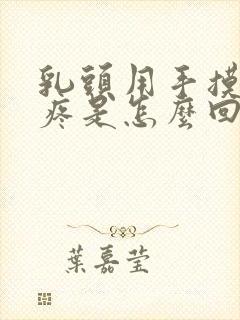 乳頭用手摸
疼是怎麼回
葉嘉瑩